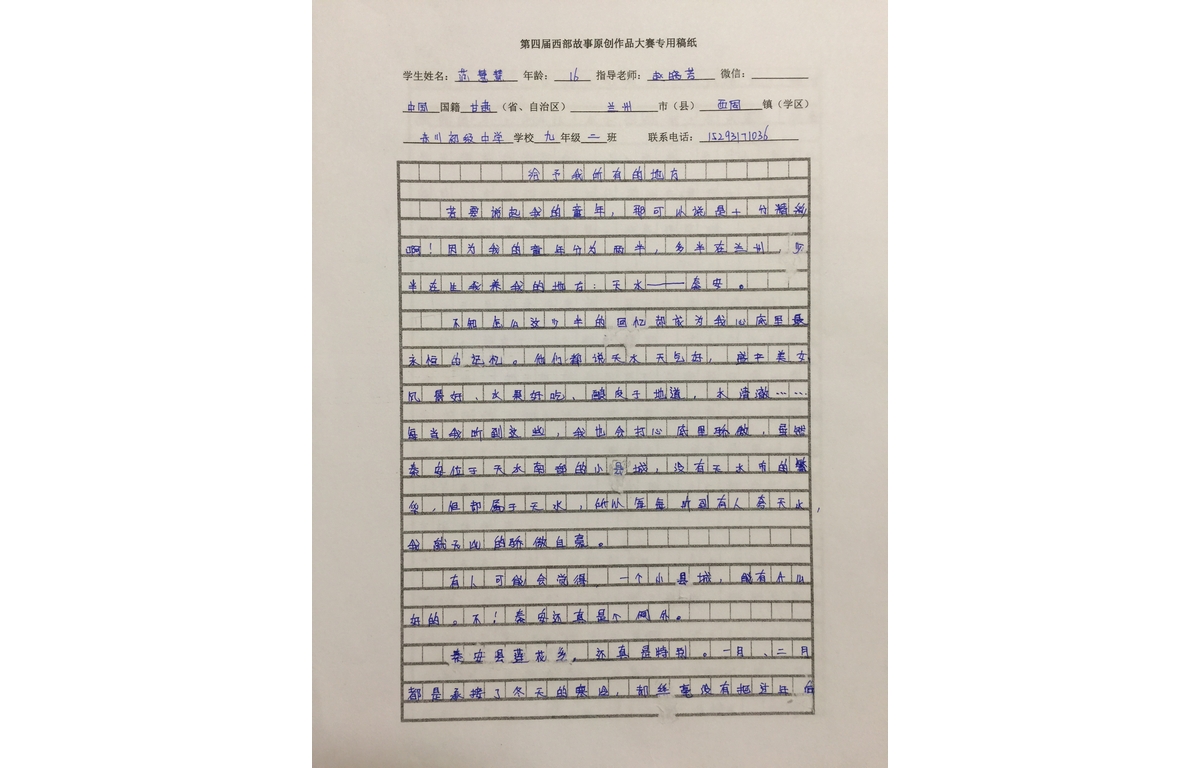 第四届西部故事原创作品大赛专用稿纸
学生姓名：苏慧慧 年龄：16 指导老师：赵晓芳 微信：
中国国籍甘肃（省、自治区）兰州市（县）西固镇（学区）
东川初级中学学校九年级二班 联系电话：15293171036
给予我所有的地方
若要说起我的童年，那可以说是十分精彩
啊！因为我的童年分为两半，多半在兰州，少
半在生我养我的地方：天水——秦安。
不知怎么这少半的回忆却成为我心底里最
永恒的契机。他们都说天水天气好，盛产美女
风景好、水果好吃、酿皮子地道，水清澈……
每当我听到这些，我也会打心底里骄傲，虽然
秦安位于天水南部的小县城，没有天水市的繁
华，但却属于天水，所以每每听到有人夸天水，
我就无比的骄傲自豪。
有人可能会觉得，一个小县城，能有什么
好的。不！秦安还真是个例外。
秦安县莲花乡，还真是特别。一月、二月
都是承接了冬天的寒冷，却丝毫没有把过年的